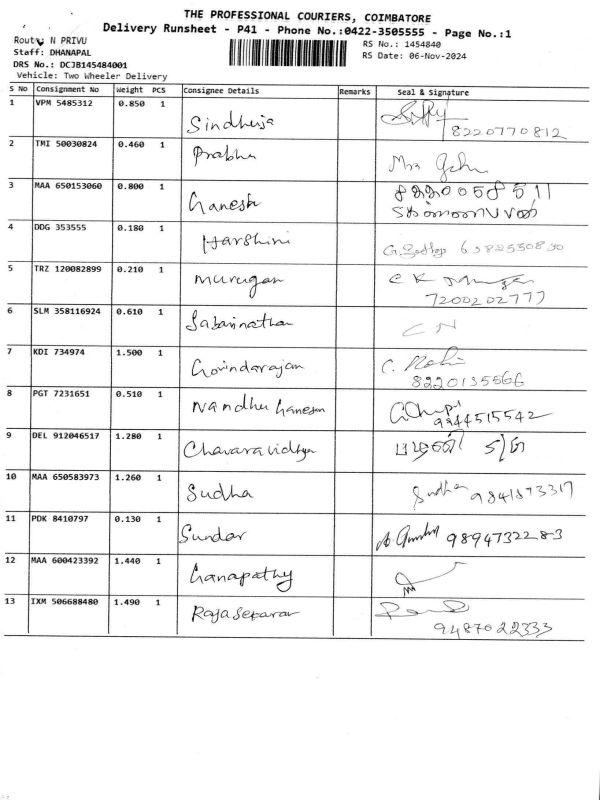 THE PROFESSIONAL COURIERS, COIMBATORE
Delivery Runsheet - P41 - Phone No.:0422-3505555 - Page No.:1
Route: N PRIVU
RS No.: 1454840
Staff: DHANAPAL
RS Date: 06-Nov-2024
DRS No.: DCJB145484001
Vehicle: Two Wheeler Delivery
S No Consignment No Weight PCS Consignee Details Remarks Seal & Signature
1 VPM 5485312 0.850 1 Sindhuja
8220770812
2 TMI 50030824 0.460 1 Prabhu
Mrs
3 MAA 650153060 0.800 1 Ganesh
4 DDG 353555 0.180 1 Harshini
5 TRZ 120082899 0.210 1 Murugan
7200202777
6 SLM 358116924 0.610 1 Sabarinathan CN
7 KDI 734974 1.500 1 Govindarajan
8220135566
8 PGT 7231651 0.510 1 Nandhu Ganesan
9344515542
9 DEL 912046517 1.280 1 Chavara Vidhya
10 MAA 650583973 1.260 1 Sudha Sudha 9841873317
11 PDK 8410797 0.130 1 Sundar 9894732283
12 MAA 600423392 1.440 1 Ganapathy
13 IXM 506688480 1.490 1 Rajasekaran
9487022333